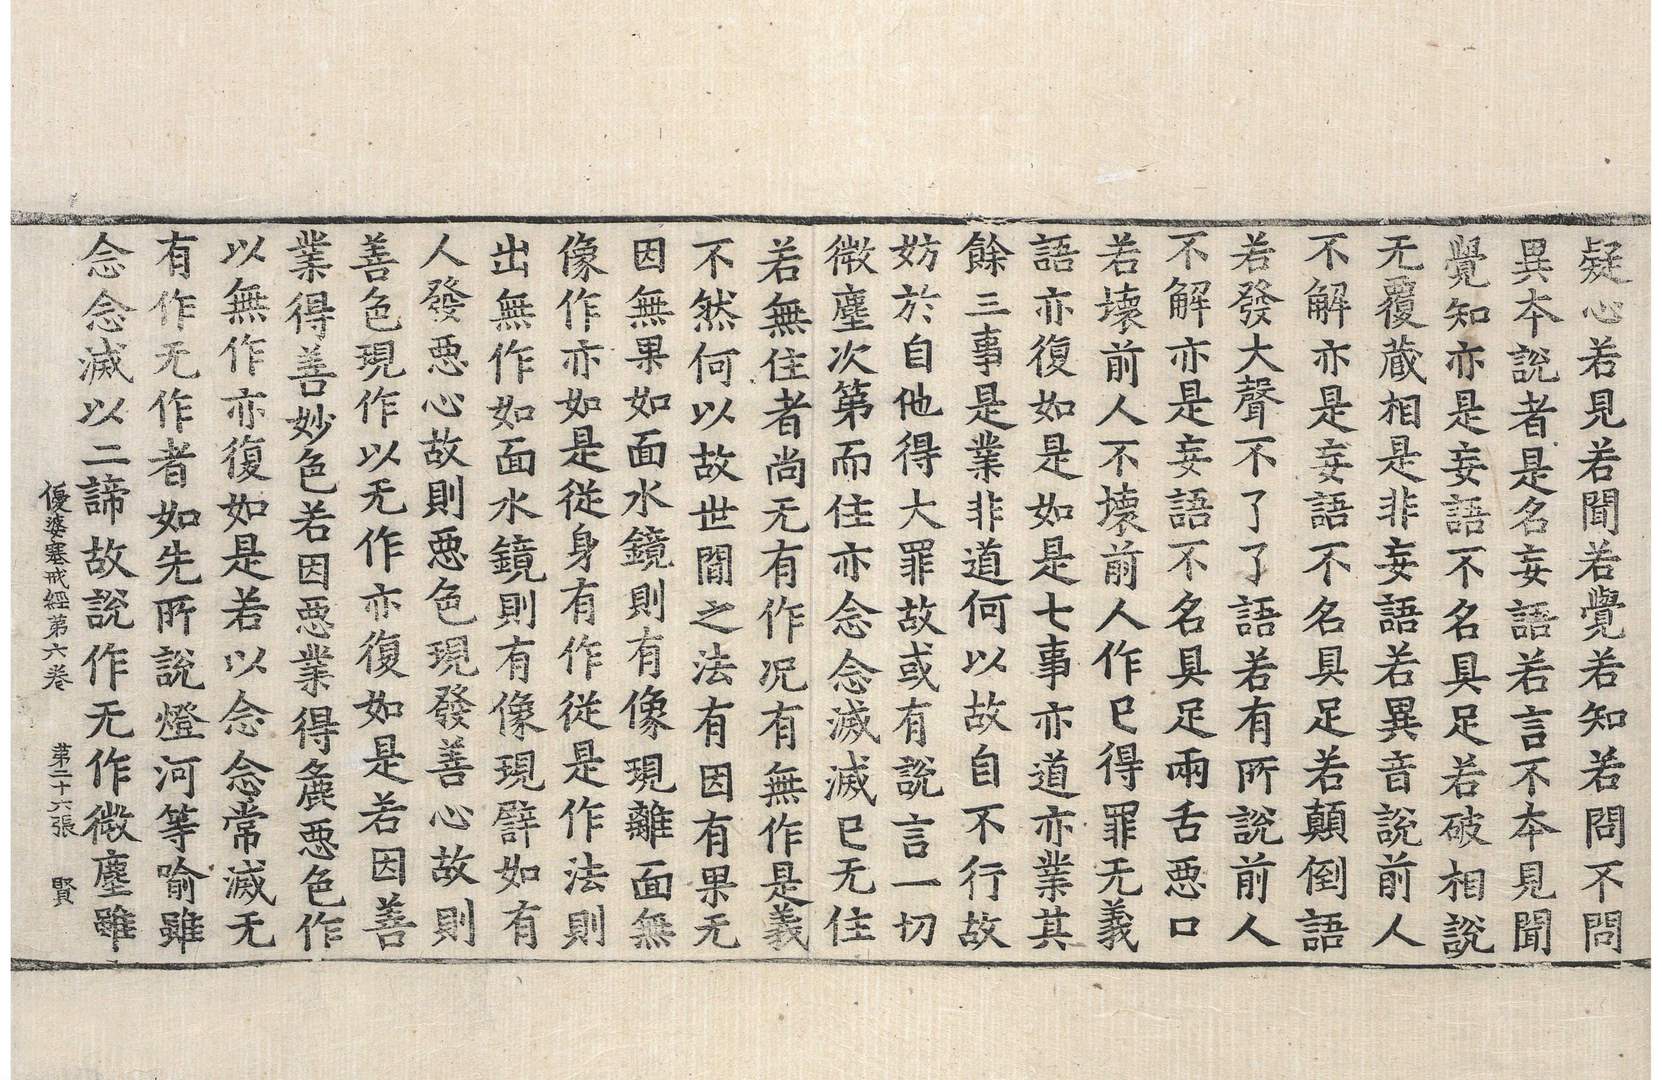 疑心若見若聞若覺若知若問不問
異本說者是名妄語若言不本見聞
覺知亦是妄語不名具足若破相說
无覆蔵相是非妄語若異音說前人
不解亦是妄語不名具足若顛倒語
若發大聲不了了語若有所說前人
不解亦是妄語不名具足兩舌惡口
若壞前人不壞前人作已得罪无義
語亦復如是如是七事亦道亦業其
餘三事是業非道何以故自不行故
妨於自他得大罪故或有說言一切
微塵次第而住亦念念滅滅已无住
若無住者尚无有作況有無作是義
不然何以故世閒之法有因有果无
因無果如面水鏡則有像現離面無
像作亦如是従身有作従是作法則
出無作如面水鏡則有像現譬如有
人發惡心故則惡色現發善心故則
善色現作以无作亦復如是若因善
業得善妙色若因惡業得麁惡色作
以無作亦復如是若以念念常滅无
有作无作者如先所說燈河等喻雖
念念滅以二諦故說作无作微塵雖
優婆塞戒經第六卷 第二十六張 賢